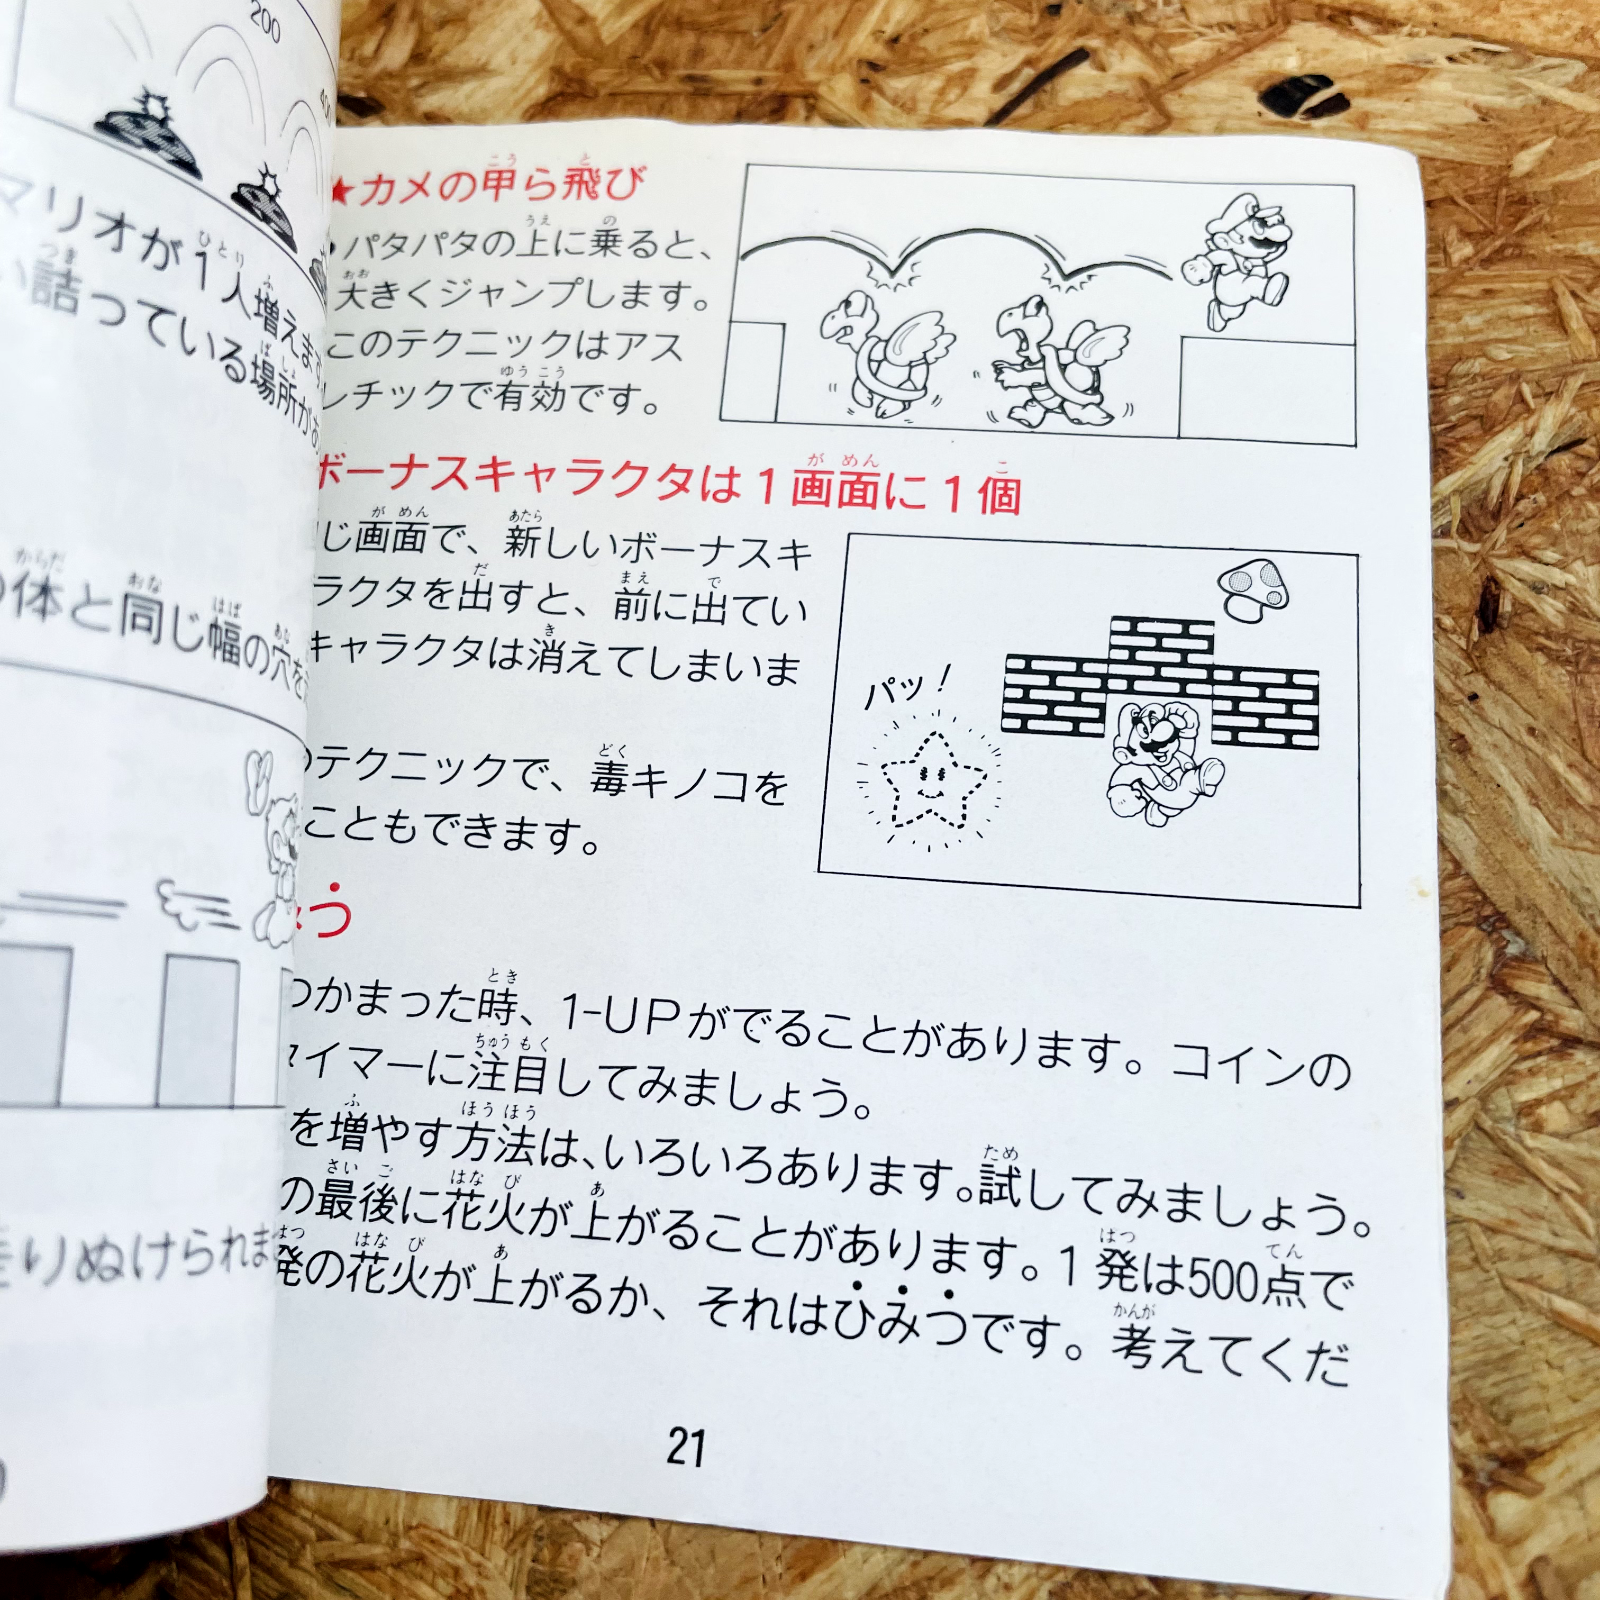 200
40
マリオが1人増えます
い詰っている場所があ
の体と同じ幅の穴を
りぬけられま
★カメの甲ら飛び
・パタパタの上に乗ると、
大きくジャンプします。
このテクニックはアス
レチックで有効です。
ボーナスキャラクタは1画面に1個
じ画面で、新しいボーナスキ
ラクタを出すと、前に出てい
キャラクタは消えてしまいま
のテクニックで、毒キノコを
こともできます。
パッ!
う
つかまった時、1-UPがでることがあります。コインの
タイマーに注目してみましょう。
を増やす方法は、いろいろあります。試してみましょう。
の最後に花火が上がることがあります。1発は500点で
発の花火が上がるか、それはひみつです。考えてくだ
21